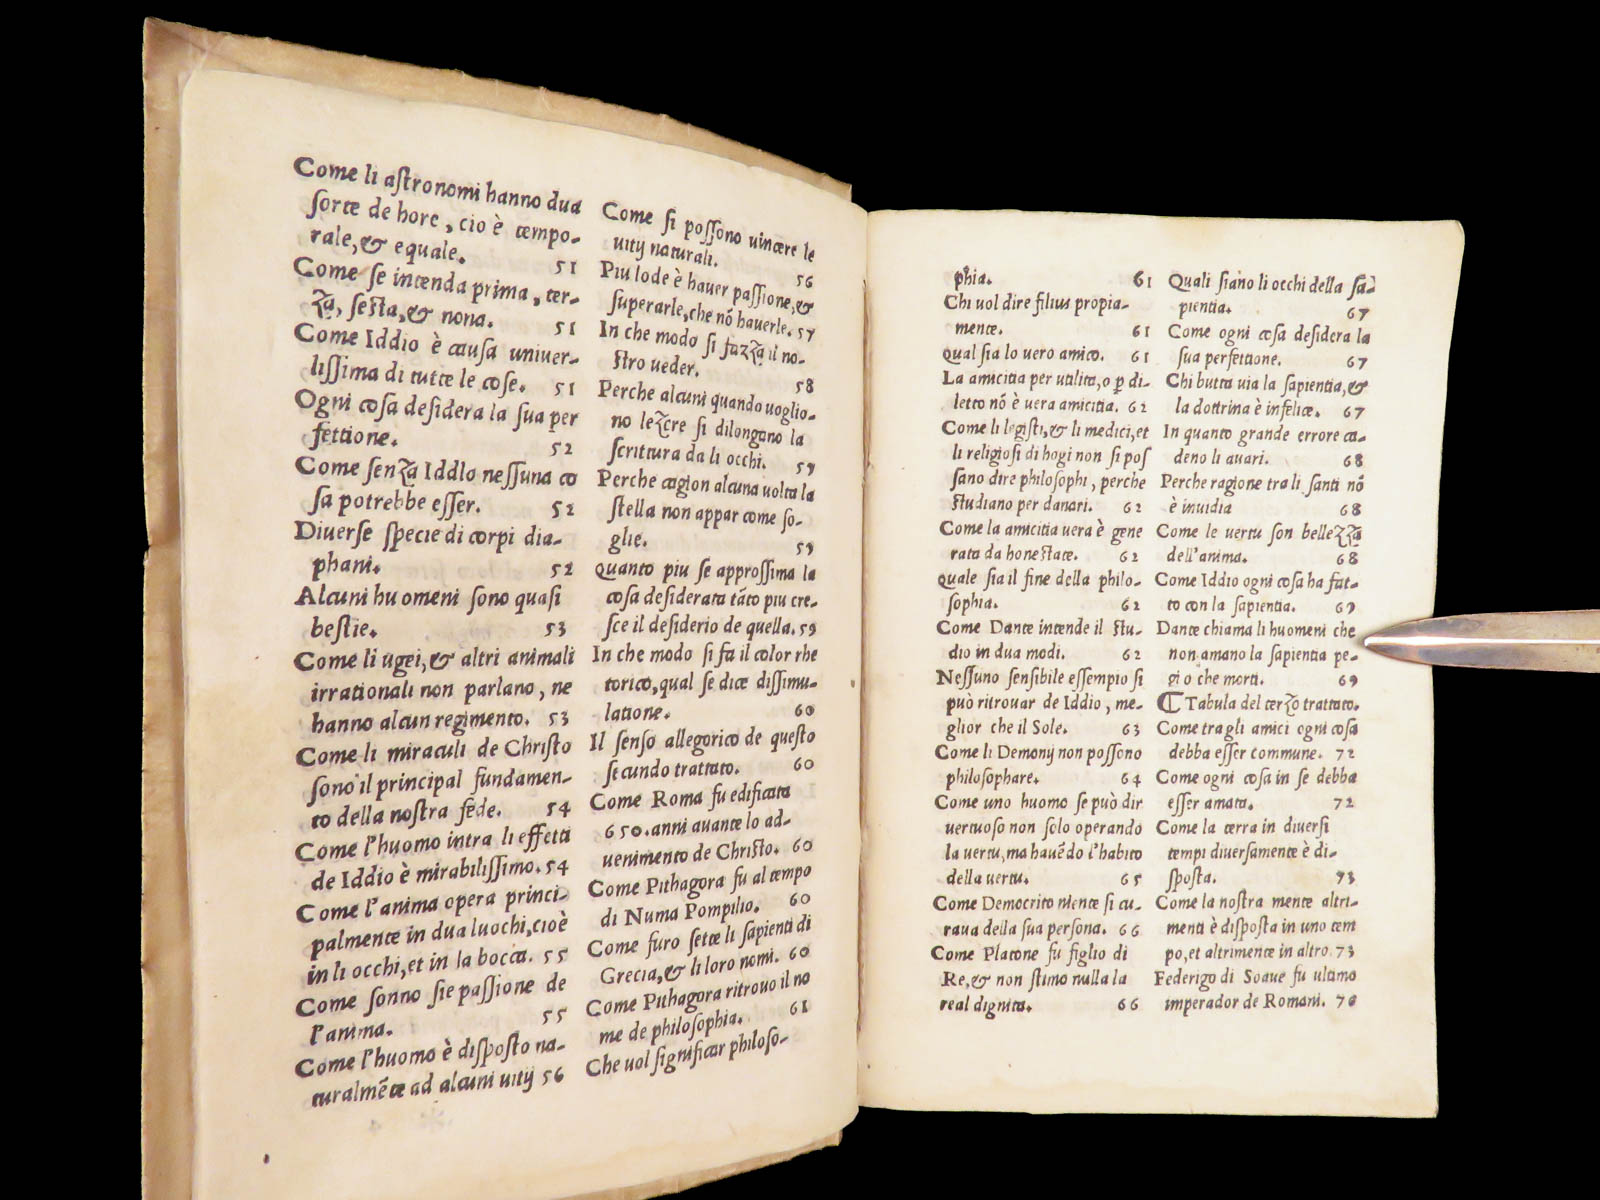 Come li astronomi hanno dua
sorte de hore, cio è tempo-
rale, & equale. 51
Come se intenda prima, ter-
za, sesta, & nona. 51
Come Iddio è causa univer-
lissima di tutte le cose. 51
Ogni cosa desidera la sua per
fettione. 52
Come senza Iddlo nessuna co
sa potrebbe esser. 52
Diverse specie di corpi dia-
phani. 52
Alcuni huomeni sono quasi
bestie. 53
Come li ugei, & altri animali
irrationali non parlano, ne
hanno alcun regimento. 53
Come li miraculi de Christo
sono il principal fundamen-
to della nostra fede. 54
Come l'huomo intra li effetti
de Iddio è mirabilissimo. 54
Come l'anima opera princi-
palmente in dua luochi, cioè
in li occhi, et in la bocca. 55
Come sonno sie passione de
l'anima. 55
Come l'huomo è disposto na-
turalmẽte ad alcuni uitij 56
Come si possono uincere le
uitij naturali. 56
Piu lode è hauer passione, &
superarle, che nõ hauerle. 57
In che modo si fazza il no-
stro ueder. 58
Perche alcuni quando uoglio-
no lezere si dilongano la
scrittura da li occhi. 59
Perche cagion alcuna uolta la
stella non appar come so-
glie. 59
Quanto piu se approssima la
cosa desiderata tãto piu cre-
sce il desiderio de quella. 59
In che modo si fa il color rhe
torico, qual se dice dissimu-
latione. 60
Il senso allegorico de questo
secundo trattato. 60
Come Roma fu edificata
650. anni auante lo ad-
uenimento de Christo. 60
Come Pithagora fu al tempo
di Numa Pompilio. 60
Come furo sette li sapienti di
Grecia, & li loro nomi. 60
Come Pithagora ritrouo il no
me de philosophia. 61
Che uol significar philoso-
phia. 61
Chi uol dire filius propia-
mente. 61
Qual sia lo uero amico. 61
La amicitia per utilita, o ꝑ di-
letto nõ è uera amicitia. 62
Come li legisti, & li medici, et
li religiosi di hogi non si pos
sano dire philosophi, perche
studiano per danari. 62
Come la amicitia uera è gene
rata da honestate. 62
Quale sia il fine della philo-
sophia. 62
Come Dante intende il stu-
dio in dua modi. 62
Nessuno sensibile essempio si
può ritrouar de Iddio, me-
glior che il Sole. 63
Come li Demonij non possono
philosophare. 64
Come uno huomo se può dir
uertuoso non solo operando
la uertu, ma hauẽdo l'habito
della uertu. 65
Come Democrito niente si cu-
raua della sua persona. 66
Come Platone fu figlio di
Re, & non stimo nulla la
real dignita. 66
Quali siano li occhi della sa-
pientia. 67
Come ogni cosa desidera la
sua perfettione. 67
Chi butta uia la sapientia, &
la dottrina è infelice. 67
In quanto grande errore ca-
deno li auari. 68
Perche ragione tra li santi nõ
è inuidia 68
Come le uertu son bellezza
dell'anima. 68
Come Iddio ogni cosa ha fat-
to con la sapientia. 69
Dante chiama li huomeni che
non amano la sapientia pe-
gio che morti. 69
¶ Tabula del terzo trattato.
Come tra gli amici ogni cosa
debba esser commune. 72
Come ogni cosa in se debba
esser amata. 72
Come la terra in diuersi
tempi diuersamente è di-
sposta. 73
Come la nostra mente altri-
menti è disposta in uno tem
po, et altrimente in altro. 73
Federigo di Soaue fu ultimo
imperador de Romani. 76